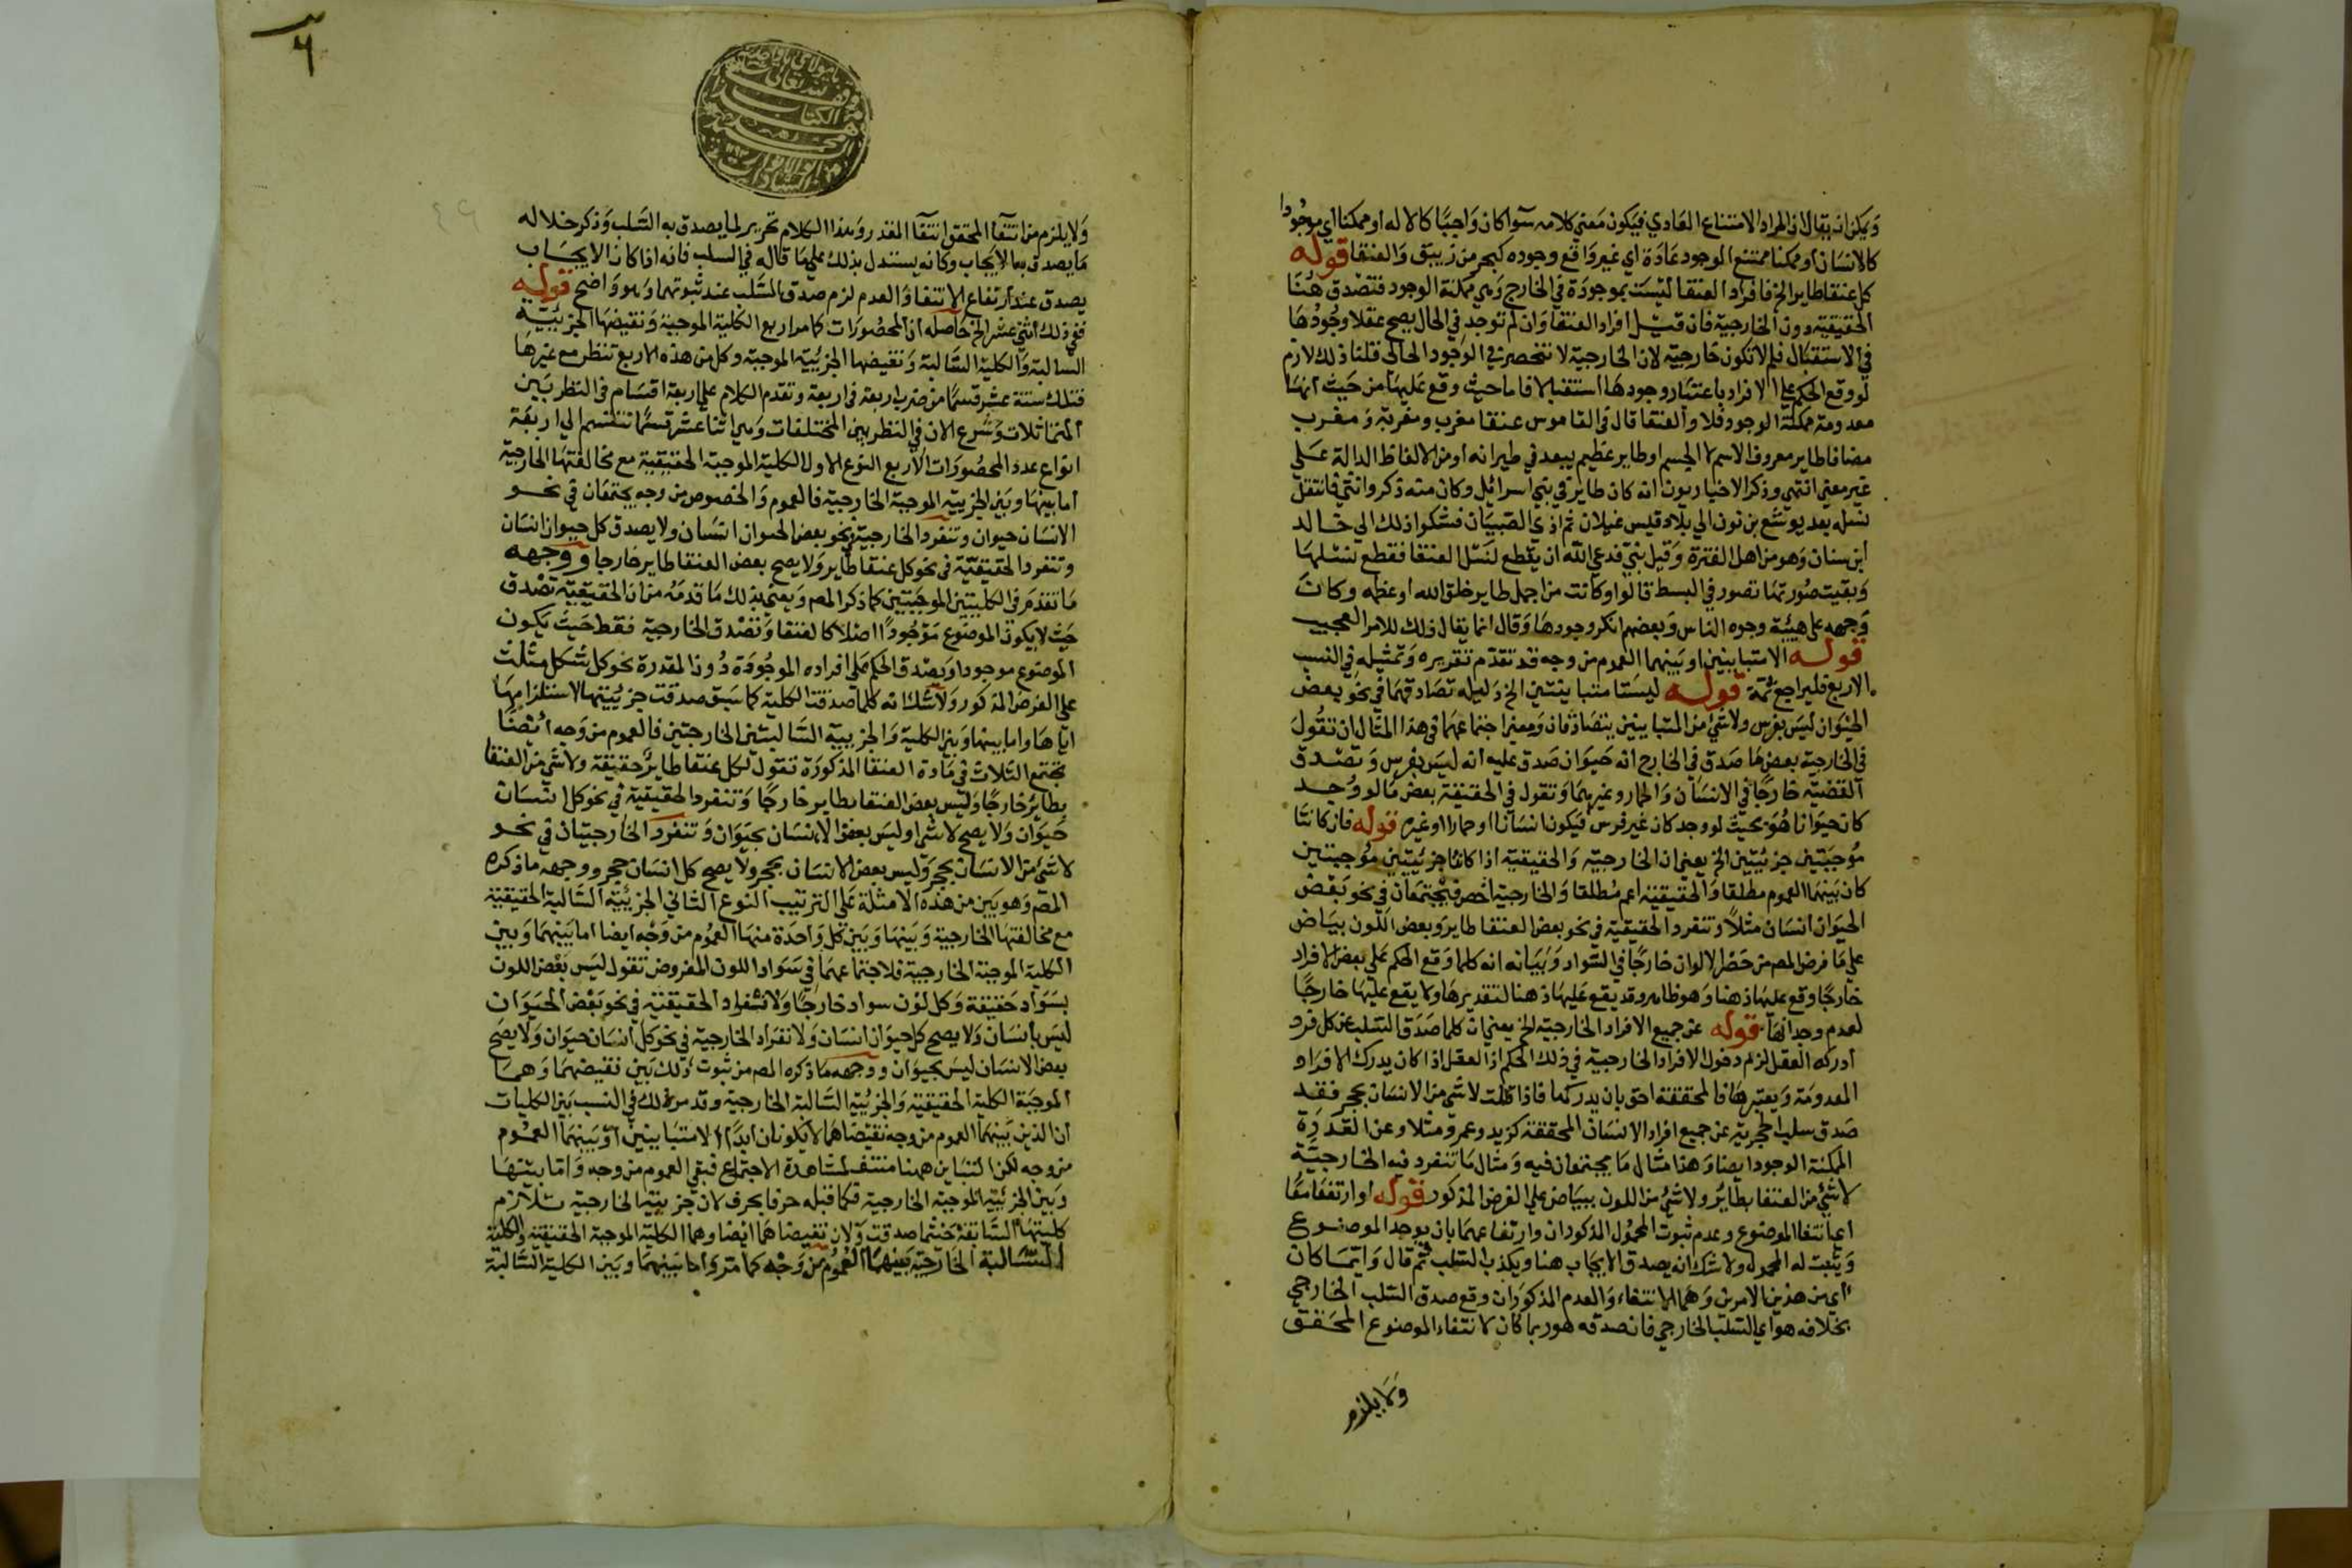 ويمكن انه يقال ان المراد الامتناع العادي فيكون معنى كلامه سوآ كان واجبا كالاله او ممكنا اي موجودا
كالانسان او ممكنا ممتنع الموجود عادة اي غير واقع وجوده كبحر من زيبق والعنقا قوله
كل عنقا طاير الخ فافراد العنقا ليست بموجودة في الخارج وهي ممكنة الوجود فتصدق هنا
الحقيقية دون الخارجية فان قيل افراد العنقا وان لم توجد في الحال يصح عقلا وجودها
في الاستقبال فلم لا تكون خارجية لان الخارجية لا تنحصر في الوجود الحالي قلنا ذلك لازم
لو وقع الحكم على الافراد باعتبار وجودها استقبالا فاما حيث وقع عليها من حيث انها
معدومة ممكنة الوجود فلا والعنقا قال في القاموس عنقا مغرب ومغربة ومغرب
مضافا طاير معروف الاسم لا الجسم او طاير عظيم يبعد في طيرانه او من الالفاظ الدالة على
غير معنى انتهى وذكر الاخباريون انه كان طاير في بني اسرائل وكان منه ذكر وانثى فانتقل
نسله بعد يوشع بن نون الي بلاد قيس غيلان ثم اذي الصبيان فشكوا ذلك الي خالد
ابن سنان وهو من اهل الفترة وقيل نبي فدعى الله ان يقطع لنسل العنقا فقطع نسلها
وبقيت صورتها تصور في البسط قالوا وكانت من اجمل طاير خلق الله او عظمه وكان
وجهه على هيئة وجوه الناس وبعضهم انكر وجودها وقال انما يقال ذلك للامر العجيب
قوله الا متباينين او بينهما العموم من وجه قد تقدم تقريره وتمثيله في النسب
الاربع فليراجع ثمة قوله ليستا متباينتين الخ دليله تصادقهما في نحو بعض
الحيوان ليس بفرس ولا شي من المتباينين يتصادقان ومعنى اجتماعهما في هذا المثال ان تقول
في الخارجية بعض ما صدق في الخارج انه حيوان صدق عليه انه ليس بفرس وتصدق
القضية خارجا في الانسان والحمار وغيرهما وتقول في الحقيقة بعض ما لو وجد
كان حيوانا هو بحيث لو وجد كان غير فرس فيكون انسانا او حمارا او غيره قوله فان كانتا
موجبتين جزئيتين الخ يعني ان الخارجية والحقيقية اذا كانتا جزئيتين موجبتين
كان بينهما العموم مطلقا والحقيقية اعم مطلقا والخارجية اخص فيجتمعان في نحو بعض
الحيوان انسان مثلا وتنفرد الحقيقية في نحو بعض العنقا طاير وبعض اللون بياض
على ما فرض المص من حصر الالوان خارجا في السواد وبيانه انه كلما وقع الحكم على بعض الافراد
خارجا وقع عليها ذهنا وهو ظاهر وقد يقع عليها ذهنا لتقديرها ولا يقع عليها خارجا
لعدم وجدانها قوله عن جميع الافراد الخارجية الخ يعني ان كلما صدق السلب عن كل فرد
ادركه العقل لزم دخول الافراد الخارجية في ذلك الحكم اذ العقل اذا كان يدرك الافراد
المعدومة ويعتبرها فالمحققة احق بان يدركها فاذا قلت لا شي من الانسان بحجر فقد
صدق سلب الحجرية عن جميع افراد الانسان المحققة كزيد وعمرو مثلا وعن المقدرة
الممكنة الوجود ايضا وهذا مثال ما يجتمعان فيه ومثال ما تنفرد فيه الخارجية
لا شي من العنقا بطاير ولا شي من اللون ببياض على الفرض المذكور قوله او ارتفعا معا
اي انتفا الموضوع وعدم ثبوت المحمول المذكوران وارتفاعهما بان يوجد الموضوع
ويثبت له المحمول ولا شك انه يصدق الايجاب هنا ويكذب السلب ثم قال وايما كان
اي من هذين الامرين وهما الانتفاء والعدم المذكوران وقع صدق السلب الخارجي
بخلافه هو اي السلب الخارجي فان صدقه هو ربما كان لانتفاء الموضوع المحقق
ولا يلزم
ولا يلزم من انتفآ المحقق انتفآ المقدر وهذا الكلام تحرير لما يصدق به السلب وذكر خلاله
ما يصدق به الايجاب وكانه يستدل بذلك على ما قاله في السلب فانه اذا كان الايجاب
يصدق عند ارتفاع الانتفا والعدم لزم صدق السلب عند ثبوتهما وهو واضح قوله
ففي ذلك اثني عشر الخ حاصله ان المحصورات كما مر اربع الكلية الموجبة ونقيضها الجزئية
السالبة والكلية السالبة ونقيضها الجزيية الموجبة وكل من هذه الاربع تنظر مع غيرها
فتلك ستة عشر قسما من ضرب اربعة في اربعة وتقدم الكلام على اربعة اقسام في النظر بين
المتماثلات وشرع الان في النظر بين المختلفات وهي اثنا عشر قسما تنقسم الي اربعة
انواع عدد المحصورات الاربع النوع الاول الكلية الموجبة الحقيقية مع مخالفتها الخارجية
اما بينها وبين الجزيية الموجبة الخارجية فالعموم والخصوص من وجه يجتمعان في نحو
الانسان حيوان وتنفرد الخارجية في نحو بعض الحيوان انسان ولا يصدق كل حيوان انسان
وتنفرد الحقيقية في نحو كل عنقا طاير ولا يصح بعض العنقا طاير خارجا ووجهه
ما تقدم في الكليتين الموجبتين كما ذكر المص ويعني بذلك ما قدمه من ان الحقيقية تصدق
حيث لا يكون الموضوع موجودا اصلا كالعنقا وتصدق الخارجية فقط حيث يكون
الموضوع موجودا ويصدق الحكم على افراده الموجودة دون المقدرة نحو كل شكل مثلث
على الفرض المذكور ولا شك انه كلما صدقت الكلية كما سبق صدقت جزييتها لاستلزامها
اياها واما بينها وبين الكلية والجزيية السالبتين الخارجتين فالعموم من وجه ايضا
تجتمع الثلاث في مادة العنقا المذكورة تقول كل عنقا طاير حقيقة ولا شي من العنقا
بطاير خارجا وليس بعض العنقا بطاير خارجا وتنفرد الحقيقية في نحو كل انسان
حيوان ولا يصح لا شي او ليس بعض الانسان بحيوان وتنفرد الخارجيتان في نحو
لا شي من الانسان بحجر وليس بعض الانسان بحجر ولا يصح كل انسان حجر ووجهه ما ذكره
المص وهو بين من هذه الامثلة على الترتيب النوع الثاني الجزئية السالبة الحقيقية
مع مخالفتها الخارجية وبينها وبين كل واحدة منها العموم من وجه ايضا اما بينهما وبين
الكلية الموجبة الخارجية فلاجتماعهما في سواد اللون المفروض تقول ليس بعض اللون
بسواد حقيقة وكل لون سواد خارجا ولانفراد الحقيقية في نحو بعض الحيوان
ليس بانسان ولا يصح كل حيوان انسان ولانفراد الخارجية في نحو كل انسان حيوان ولا يصح
بعض الانسان ليس بحيوان ووجهه ما ذكره المص من ثبوت ذلك بين نقيضهما وهما
الموجبة الكلية الحقيقية والجزئية السالبة الخارجية وقد مر في ذلك في النسب بين الكليات
ان الذين بينهما العموم من وجه نقيضاهما لا يكونان ابدا الا متباينين او بينهما العموم
من وجه لكن التباين هنا منتف لمشاهدة الاجتماع فبقي العموم من وجه واما بينها
وبين الجزئية الموجبة الخارجية فكما قبله حرفا بحرف لان جزيية الخارجية تلازم
كليتها السابقة حيثما صدقت ولان نقيضاهما ايضا وهما الكلية الموجبة الحقيقية والكلية
السالبة الخارجية بينهما العموم من وجه كما مر واما بينهما وبين الكلية السالبة